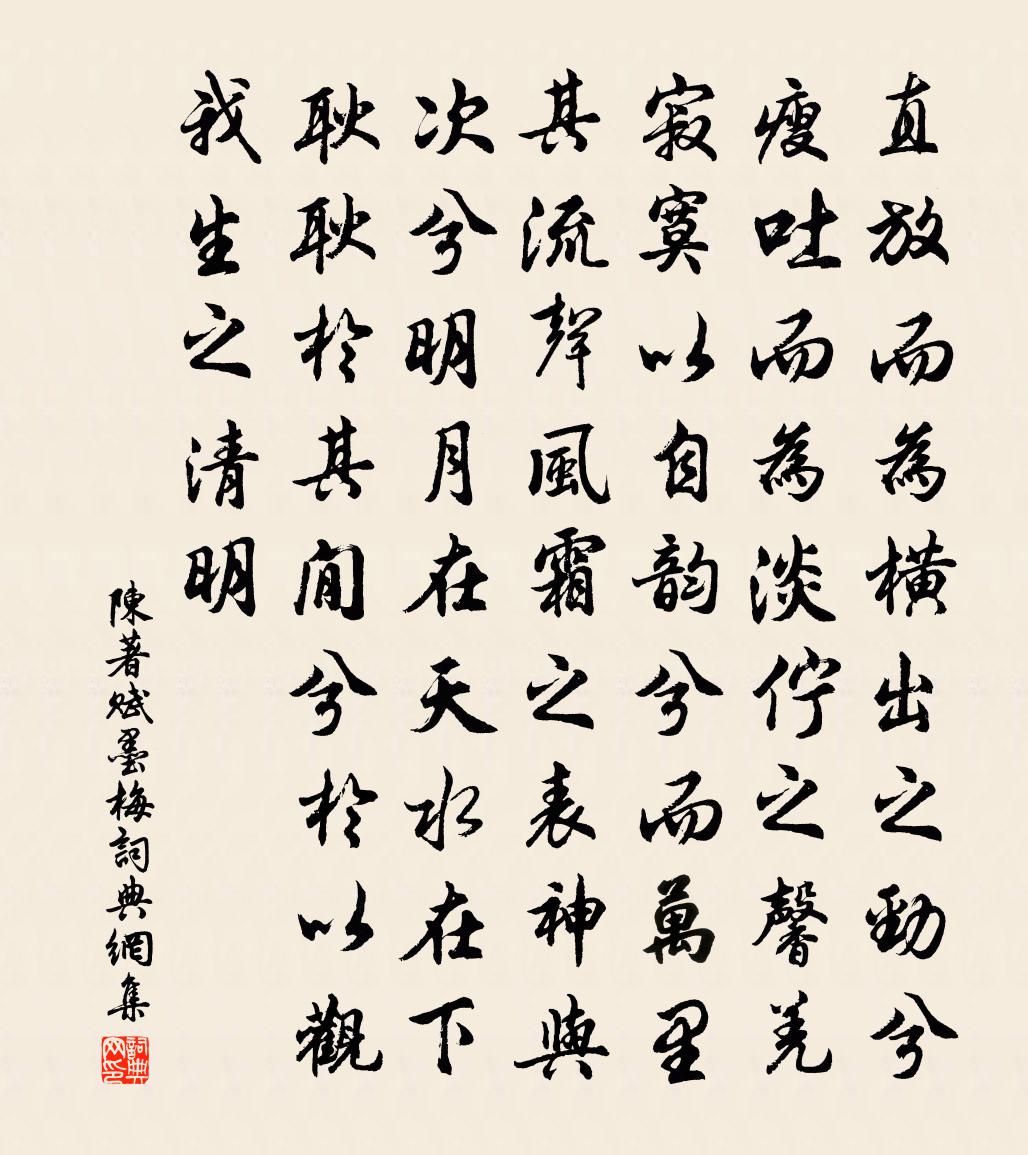 直放而為橫出之勁兮
瘦吐而為淡佇之馨羌
寂寞以自韵兮而萬里
其流聲風霜之表神與
次兮明月在天水在下
耿耿於其間兮於以觀
我生之清明
陳著賦墨梅詞典網集
詞典
网印